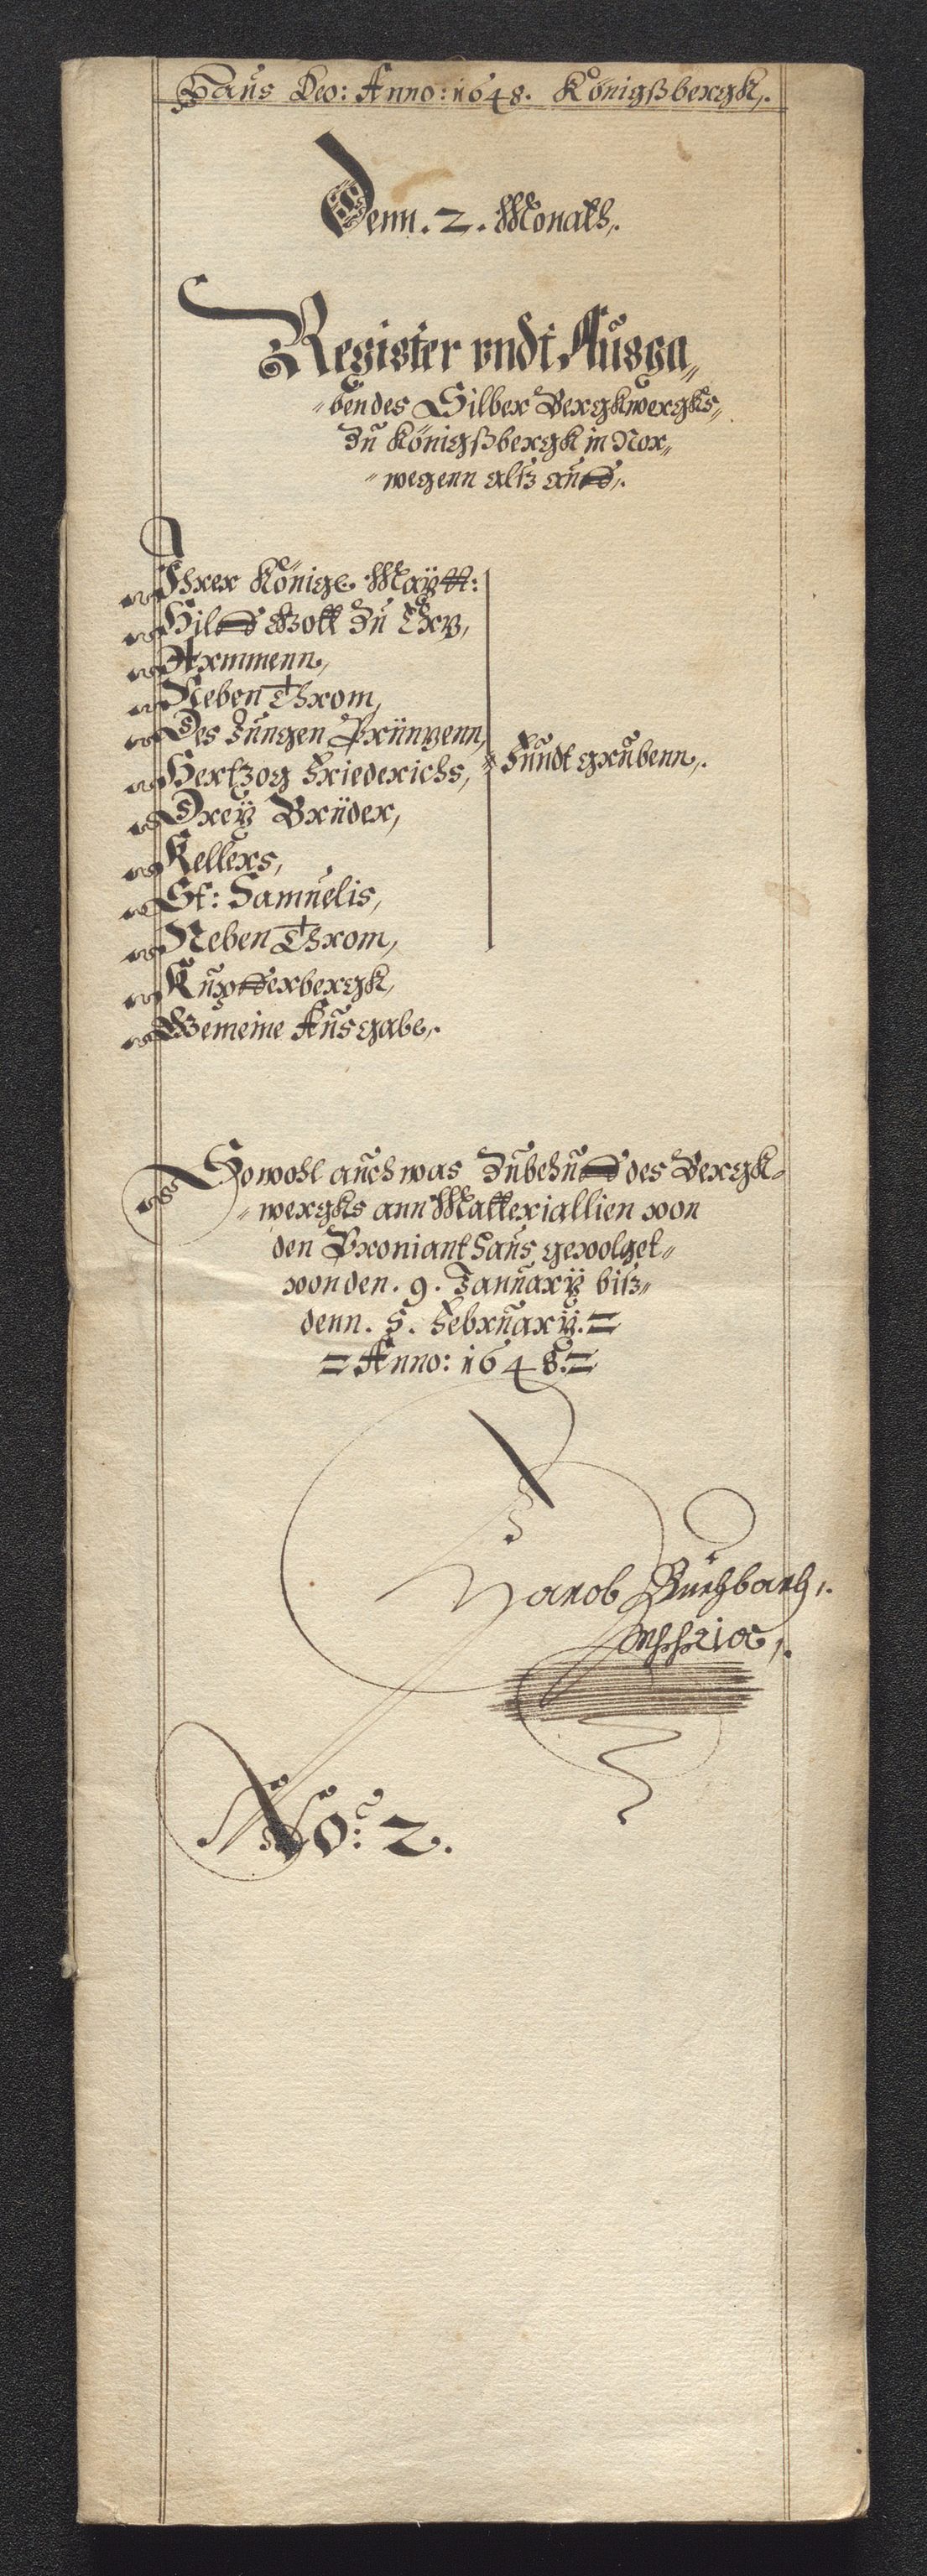 Laus Deo: Anno: 1648. Königßbergk,.
Denn. 2. Monath,.
Register vndt Außga„
„ben des Silber Bergkwergks„
Zu Königßbergk in Nor„
„wegenn alß auff,.
Ihrer Königl: Maÿtt:
Hilff Gott Zu Ery,
Armmenn,
Neben Throm,
Des Jungen Printzenn,
Hertzog Friederichs,
Dreÿ Brüder,
Kellers,
St: Samuelis,
Neben Throm,
Fundt grubenn,.
Kupfferbergk,
Gemeine Ausgabe,.
So wohl auch was Zu behuff des Bergk„
„wergks ann Matteriallien von
den Proviant haus gevolget„
von den. 9. Januarÿ biß„
denn. 5. Februarÿ.=
=Anno: 1648.=
Jacob Buchbach,.
No: 2.